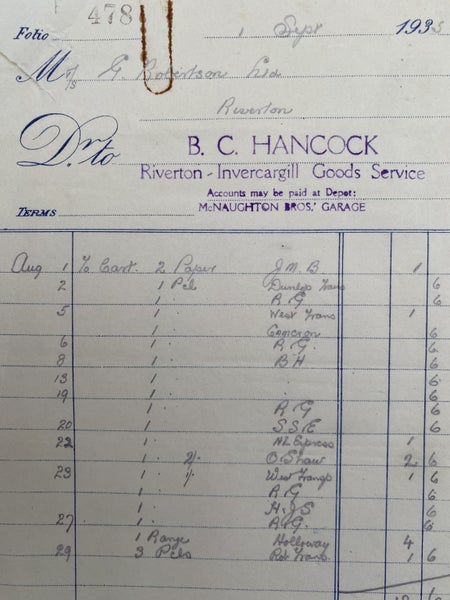 478
Folio 1 Sept 1935
M/s G Robertson Ltd
Riverton
Dr. to
B. C. HANCOCK
Riverton - Invercargill Goods Service
Accounts may be paid at Depot:
TERMS McNAUGHTON BROS.' GARAGE
Aug 1 To Cart. 2 Paper J.M.B 1
2 1 Pcl Dunlop Trans 6
1 R G 6
5 1 West Trans 1
1 Cameron 6
6 1 R. G. 6
8 1 B H 6
13 1 6
19 1 6
1 R G 6
20 1 S.S.E 6
22 1 NZ Express 1
1 O. Shaw 2 6
23 1 West Trans 1 6
1 R. G 6
1 H.J.S 6
27 1 R. G. 6
1 Range Holloway 4
29 3 Pcls Rob Trans 1 6